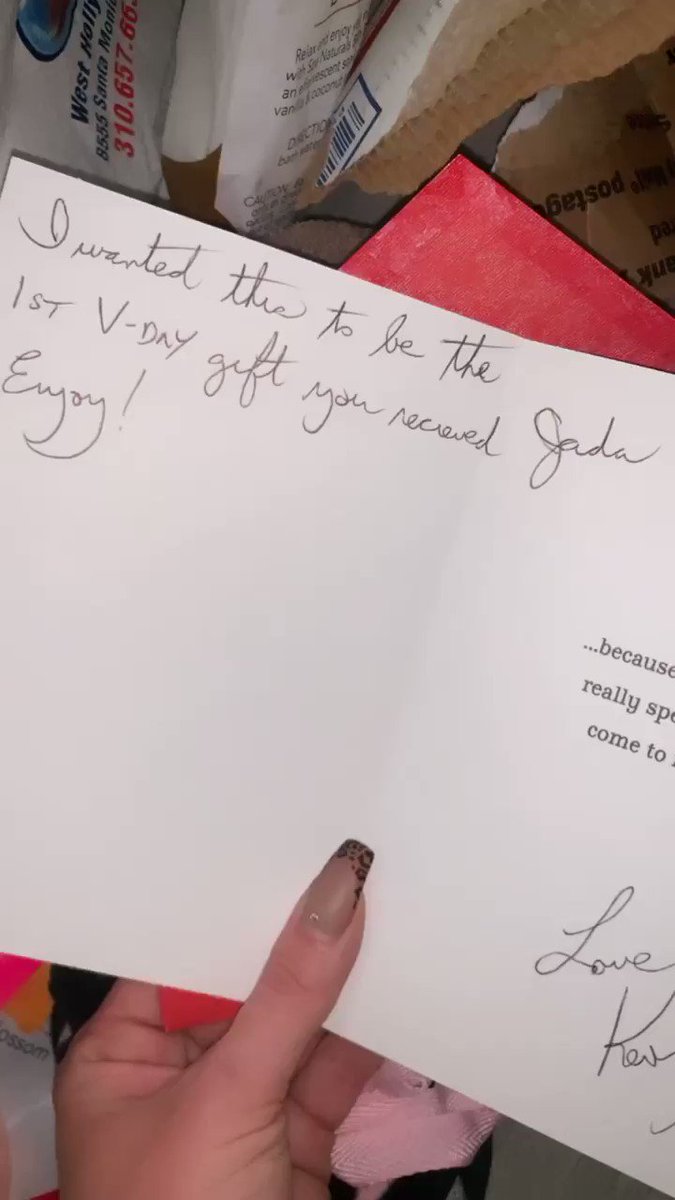 West Holly
8555 Santa Moni
310.657.66
Relax and enjoy
with Spa Naturals
an effervescent
vanilla & coconut
CAUTION
postage
I wanted this to be the
1ST V-DAY gift you recieved Jada
Enjoy!
...because
really spe
come to
Love,
Kev
ossom